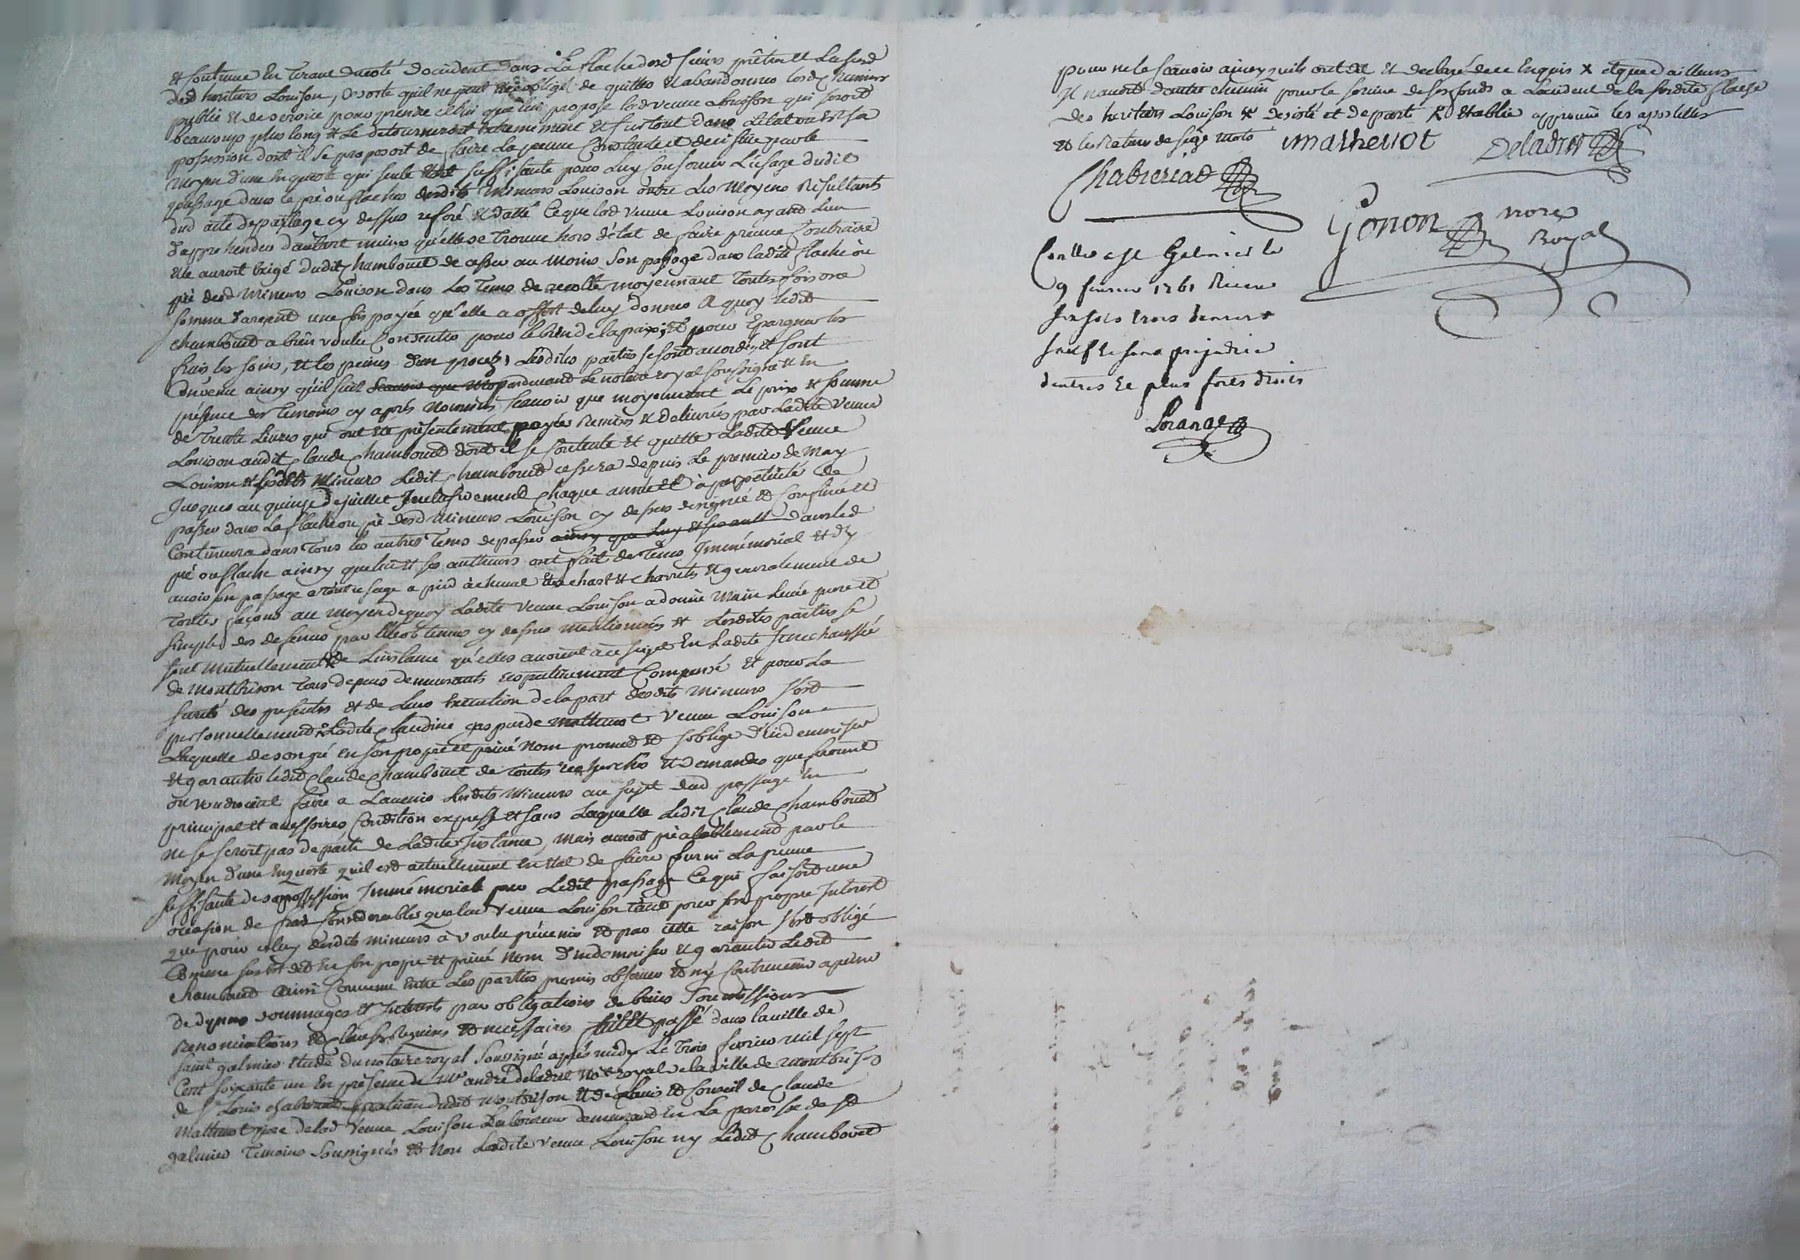 et continue En terant du coté doccident dans La flache desd sieurs prêtres et La susd
des heritiers Louison, En sorte quil ne peut être obligé de quitter et abandonner led chemin
publié et de service pour prendre celui que lui propose lad veuve Louison qui seroit
beaucoup plus long et Le detourneroit Extremement et surtout dans L'Etat ou Est sa
possession dont il se proposoit de faire La preuve Constante et decisive par le
Moyen d'une Enquête qui seule Est suffisante pour Luy conserver Lusage dudit
passage dans le pré ou flache desdits Mineurs Louison outre Les Moyens Resultants
dud acte de partage cy dessus referé et datté Ce que lad veuve Louison ayand lieu
d'apprehender d'autant mieux qu'elle se trouve hors d'état de faire preuve Contraire
Elle auroit Exigé dudit chambouet de cesser au Moins son passage dans ladite flache ou
pré desd Mineurs Louison dans Les tems de recolte moyennant toutesfois une
somme d'argent une fois payée qu'elle a offert de luy donner A quoy ledit
chambouet a bien voulu Consentir pour le bien de la paix, et pour Epargner les
frais les soins, et les peines d'un procez, Lesdites parties se sont accordées et sont
Convenu ainsy qu'il suit pardevand Le notaire royal soussigné et En
présence des temoins cy après Nommés, scavoir que moyennant Le prix et somme
de trente Livres qui ont eté presentement payés Remises et delivrés par Ladite Veuve
Louison audit Claude Chambouet dont il se contente et quitte Ladite Veuve
Louison et lesdits Mineurs Ledit Chambouet cessera depuis Le premier de May
Jusques au quinze de juillet Inclusivement chaque année et à perpetuité de
passer dans La flache ou pré desd Mineurs Louison cy dessus designé et Confiné et
Continuera dans tous les autres tems de passer ainsy que Luy et ses autt dans led
pré ou flache ainsy que lui et ses autheurs ont fait de tems Immémorial et d'y
avoir son passage et tout usage a pied à cheval et a chars et charrettes et generalement de
toutes façons au moyen de quoy Ladite Veuve Louison a donné Main Levée pure et
simple des defenses par Elle obtenues cy dessus Mentionnées et Lesdites parties se
sont mutuellement de L'instance qu'elles avoient à ce sujet En Ladite Senechaussée
de Montbrison tous depens demeurants respectivement Compensé et pour La
sureté des presentes et de leur Execution de la part desdits Mineurs s'est
personnellement Ladite Claudine Matheuot Veuve Louison
Laquelle de son gré en son propre et privé Nom promed et s'oblige d'indemniser
et garantir ledit Claude Chambouet de toutes recherches et demandes que pourront
ou voudroient faire a L'avenir Lesdits Mineurs au sujet dud passage En
principal et accessoires Condition expresse et sans Laquelle Ledit Claude Chambouet
ne se seroit pas departi de Ladite Instance, Mais auroit préalablement par le
Moyen d'une Enquête quil est actuellement En Etat de faire fourni La preuve
suffisante de sa possession Immémoriale pour Ledit passage Ce qui faisoit une
ocasion de frais Considerables que lad Veuve Louison tant pour son propre Interest
que pour celuy desdits mineurs à voulu prévenir et par cette raison s'est obligé
Comme sus est dit En son propre et privé Nom d'indemniser et garantir Ledit
chambouet Ainsi Convenu Entre Les parties promis observer et ny Contrevenir a peine
de depens dommages et Interests par obligations de biens Soumissions
Renonciations et Clauses Requises et necessaires fait Et passé dans la ville de
saint galmier Etude du notaire royal soussigné après midy Le trois fevrier mil sept
Cent soixante un En presence de Me andré deladret Nre royal de la ville de Montbrison
de Sr Louis Chabreriat praticien dudit Montbrison Et de L'avis et Conseil de Claude
Matheuot pere de lad Veuve Louison Laboureur demeurand En La paroisse de St
galmier Temoins Soussignés et Non Ladite veuve Louison ny Ledit Chambouet
pour ne le scavoir ainsy quils ont dit et declaré de ce Enquis x et que d'ailleurs
Il n'auroit d'autre chemin pour le service de ses fonds a L'occident de la susdite flache
des heritiers Louison x desisté et departi x Etablie approuvé les apostilles
et les Ratures de sept mots
Matheuot
Deladret
Chabreriat
Gonon nore Royal
Conllé a St Galmier le
9 fevrier 1761 Receu
six sols trois deniers
sauf Et sans prejudice
dautres Et plus forts droits
Lorange